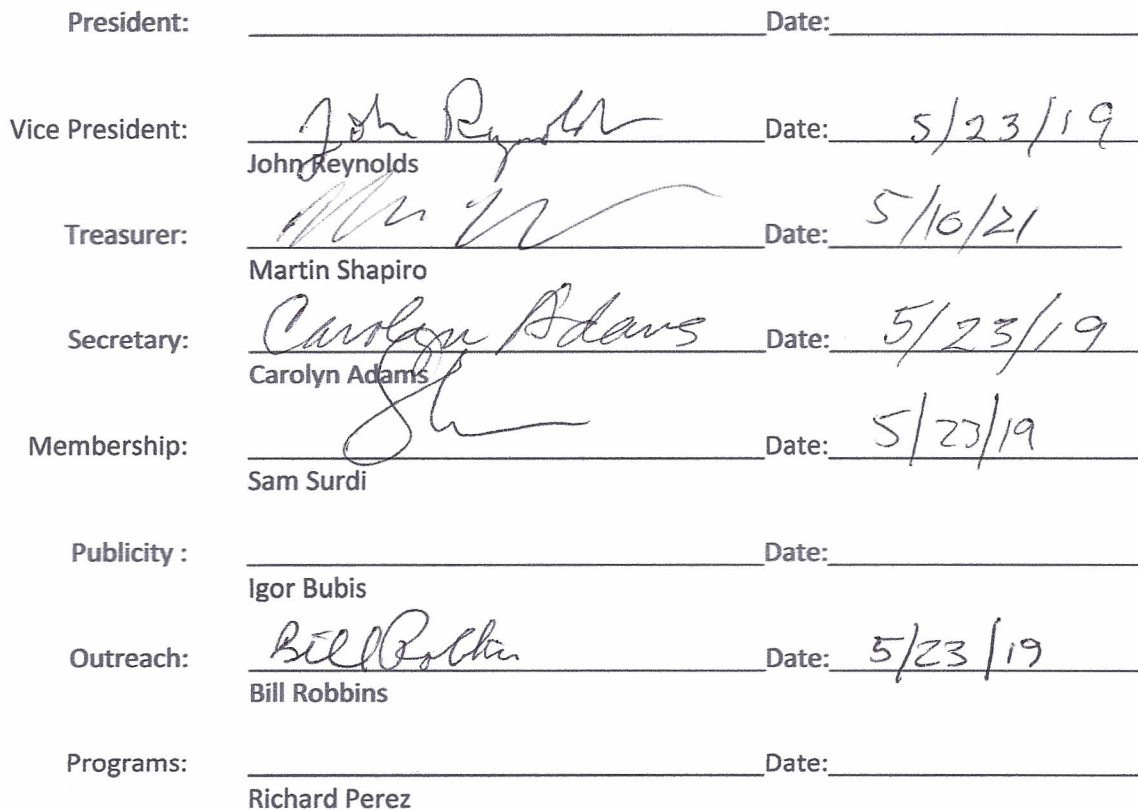 President: Date:
Vice President: John Reynolds Date: 5/23/19
John Reynolds
Treasurer: Date: 5/10/21
Martin Shapiro
Secretary: Carolyn Adams Date: 5/23/19
Carolyn Adams
Membership: Date: 5/23/19
Sam Surdi
Publicity : Date:
Igor Bubis
Outreach: Bill Robbins Date: 5/23/19
Bill Robbins
Programs: Date:
Richard Perez